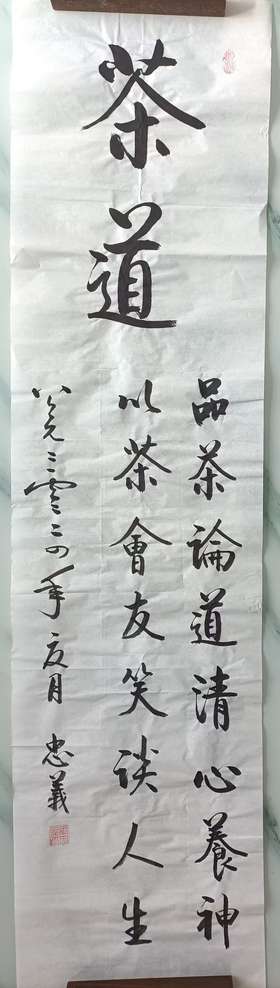 茶道
品茶論道清心養神
以茶會友笑談人生
公元二零二四年夏月 忠義